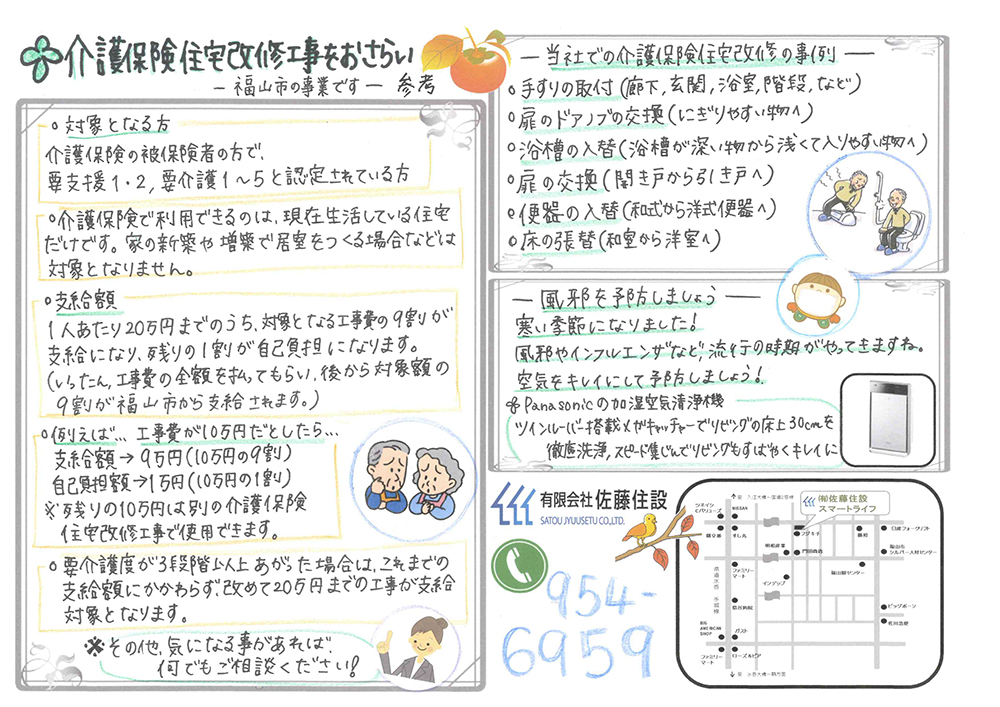 介護保険住宅改修工事をおさらい
― 福山市の事業です ― 参考
○対象となる方
介護保険の被保険者の方で、
要支援1・2,要介護1~5と認定されている方
○介護保険で利用できるのは、現在生活している住宅
だけです。家の新築や増築で居室をつくる場合などは
対象となりません。
○支給額
1人あたり20万円までのうち、対象となる工事費の9割が
支給になり、残りの1割が自己負担になります。
(いったん、工事費の全額を払ってもらい、後から対象額の
9割が福山市から支給されます。)
○例えば… 工事費が10万円だとしたら…
支給額→9万円(10万円の9割)
自己負担額→1万円(10万円の1割)
※残りの10万円は別の介護保険
住宅改修工事で使用できます。
○要介護度が3段階以上あがった場合は、これまでの
支給額にかかわらず、改めて20万円までの工事が支給
対象となります。
※その他、気になる事があれば、
何でもご相談ください!
― 当社での介護保険住宅改修の事例 ―
○手すりの取付(廊下,玄関,浴室,階段,など)
○扉のドアノブの交換(にぎりやすい物へ)
○浴槽の入替(浴槽が深い物から浅くて入りやすい物へ)
○扉の交換(開き戸から引き戸へ)
○便器の入替(和式から洋式便器へ)
○床の張替(和室から洋室へ)
― 風邪を予防しましょう ―
寒い季節になりました!
風邪やインフルエンザなど,流行の時期がやってきますね。
空気をキレイにして予防しましょう!
Panasonicの加湿空気清浄機
ツインルーバー搭載メガキャッチャーでリビングの床上30cmを
徹底洗浄,スピード集じんでリビングもすばやくキレイに
有限会社 佐藤住設
SATOU JYUUSETU CO.,LTD.
954-
6959
㈲佐藤住設
スマートライフ
NISSAN
すし丸
フジキチ
門田商店
ファミリー
マート
インテリア
BIG
AMERICAN
SHOP
ガスト
ファミリー
マート
ローズ&ピア
福山市
シルバー人材センター
ビッグボーン